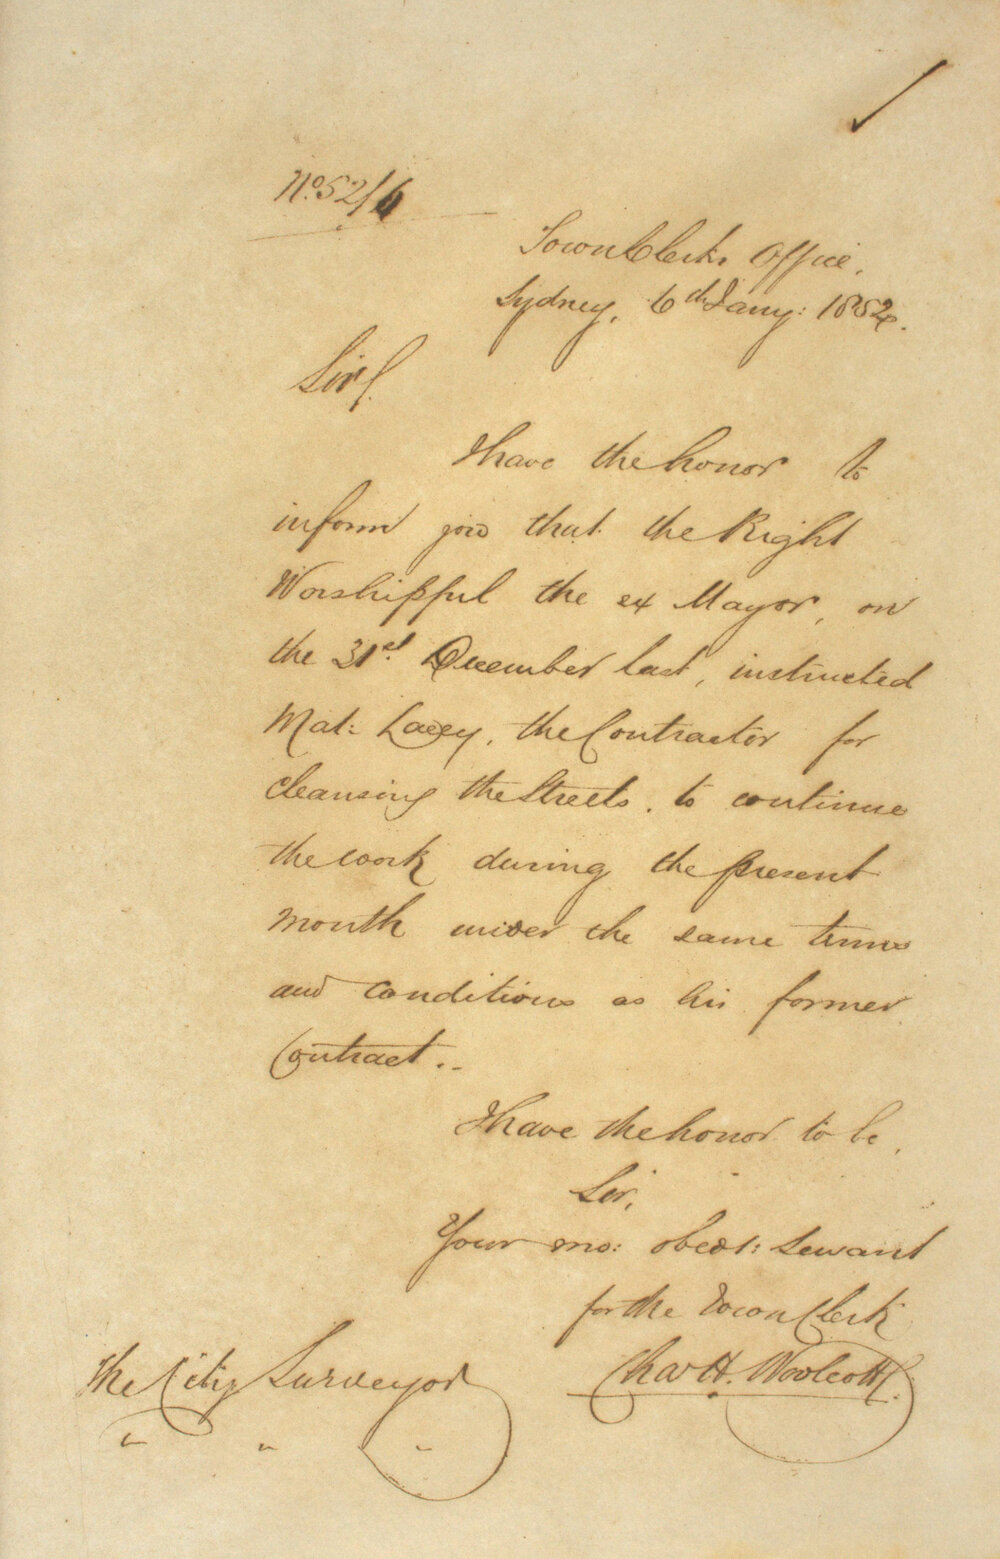 No. 52/6
Town Clerks Office,
Sydney, 6th Jany: 1852.
Sir,
I have the honor to
inform you that the Right
Worshipful the ex Mayor, on
the 31st. December last, instructed
Mat: Lacey, the Contractor for
cleansing the Streets, to continue
the work during the present
month under the same terms
and conditions as his former
Contract..
I have the honor to be,
Sir,
Your mo: obedt: Servant
for the Town Clerk
Chas H. Woolcott.
The City Surveyor
" " "